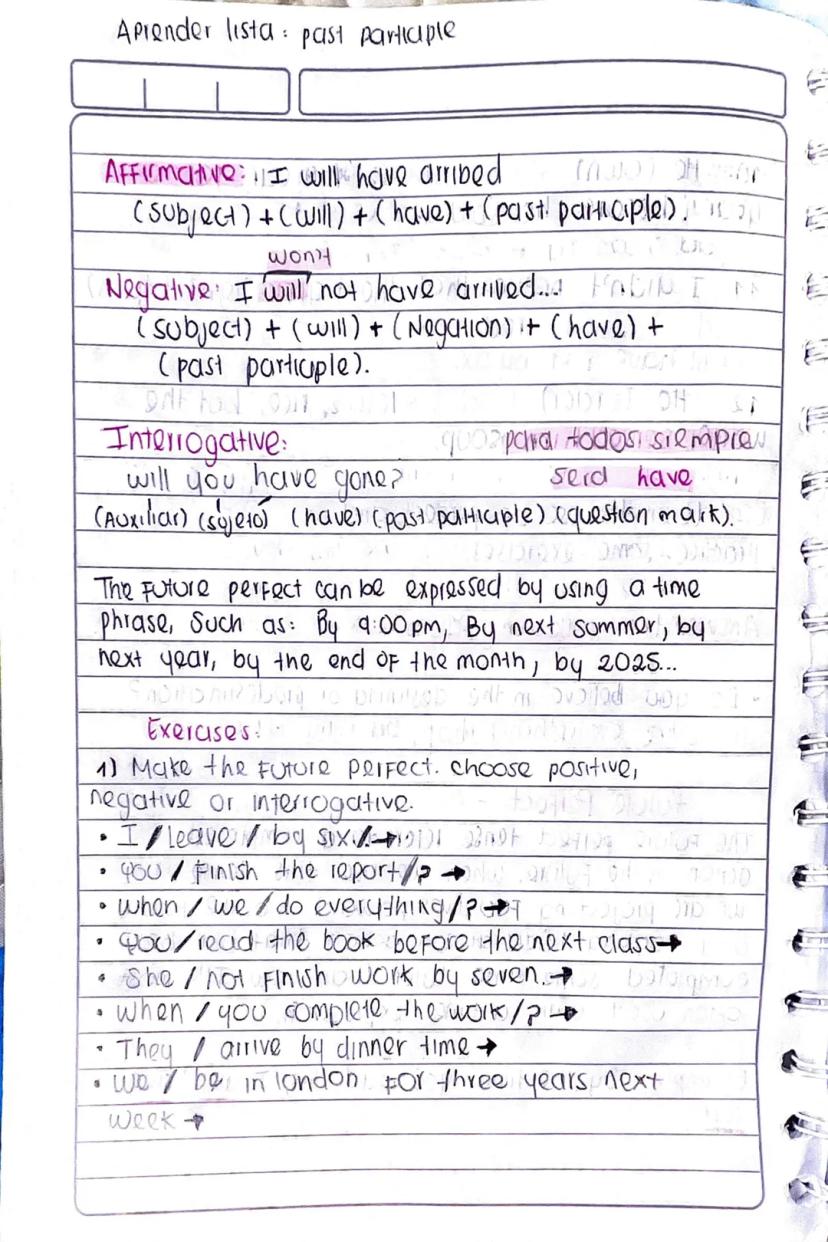 Aprender lista: past participle
Affirmative: I will have arribed
(subject) + (will) + (have) + (past participle).
won't
Negative: I will not have arrived...
(subject) + (will) + (Negation) + (have) +
(past participle).
Interrogative: para todos siempre
will you have gone? será have
(Auxiliar) (sujeto) (have) (past participle) (question mark).
The Future perfect can be expressed by using a time
phrase, Such as: By 9:00 pm, By next summer, by
next year, by the end of the month, by 2025...
Exercises:
1) Make the Future perfect. choose positive,
negative or interrogative.
• I / leave / by six / →
• you / Finish the report / ? →
• when / we / do everything / ? →
• you / read the book before the next class →
• She / not Finish work by seven. →
• when / you complete the work / ? →
• They / arrive by dinner time →
• we / be in london For three years next
week →